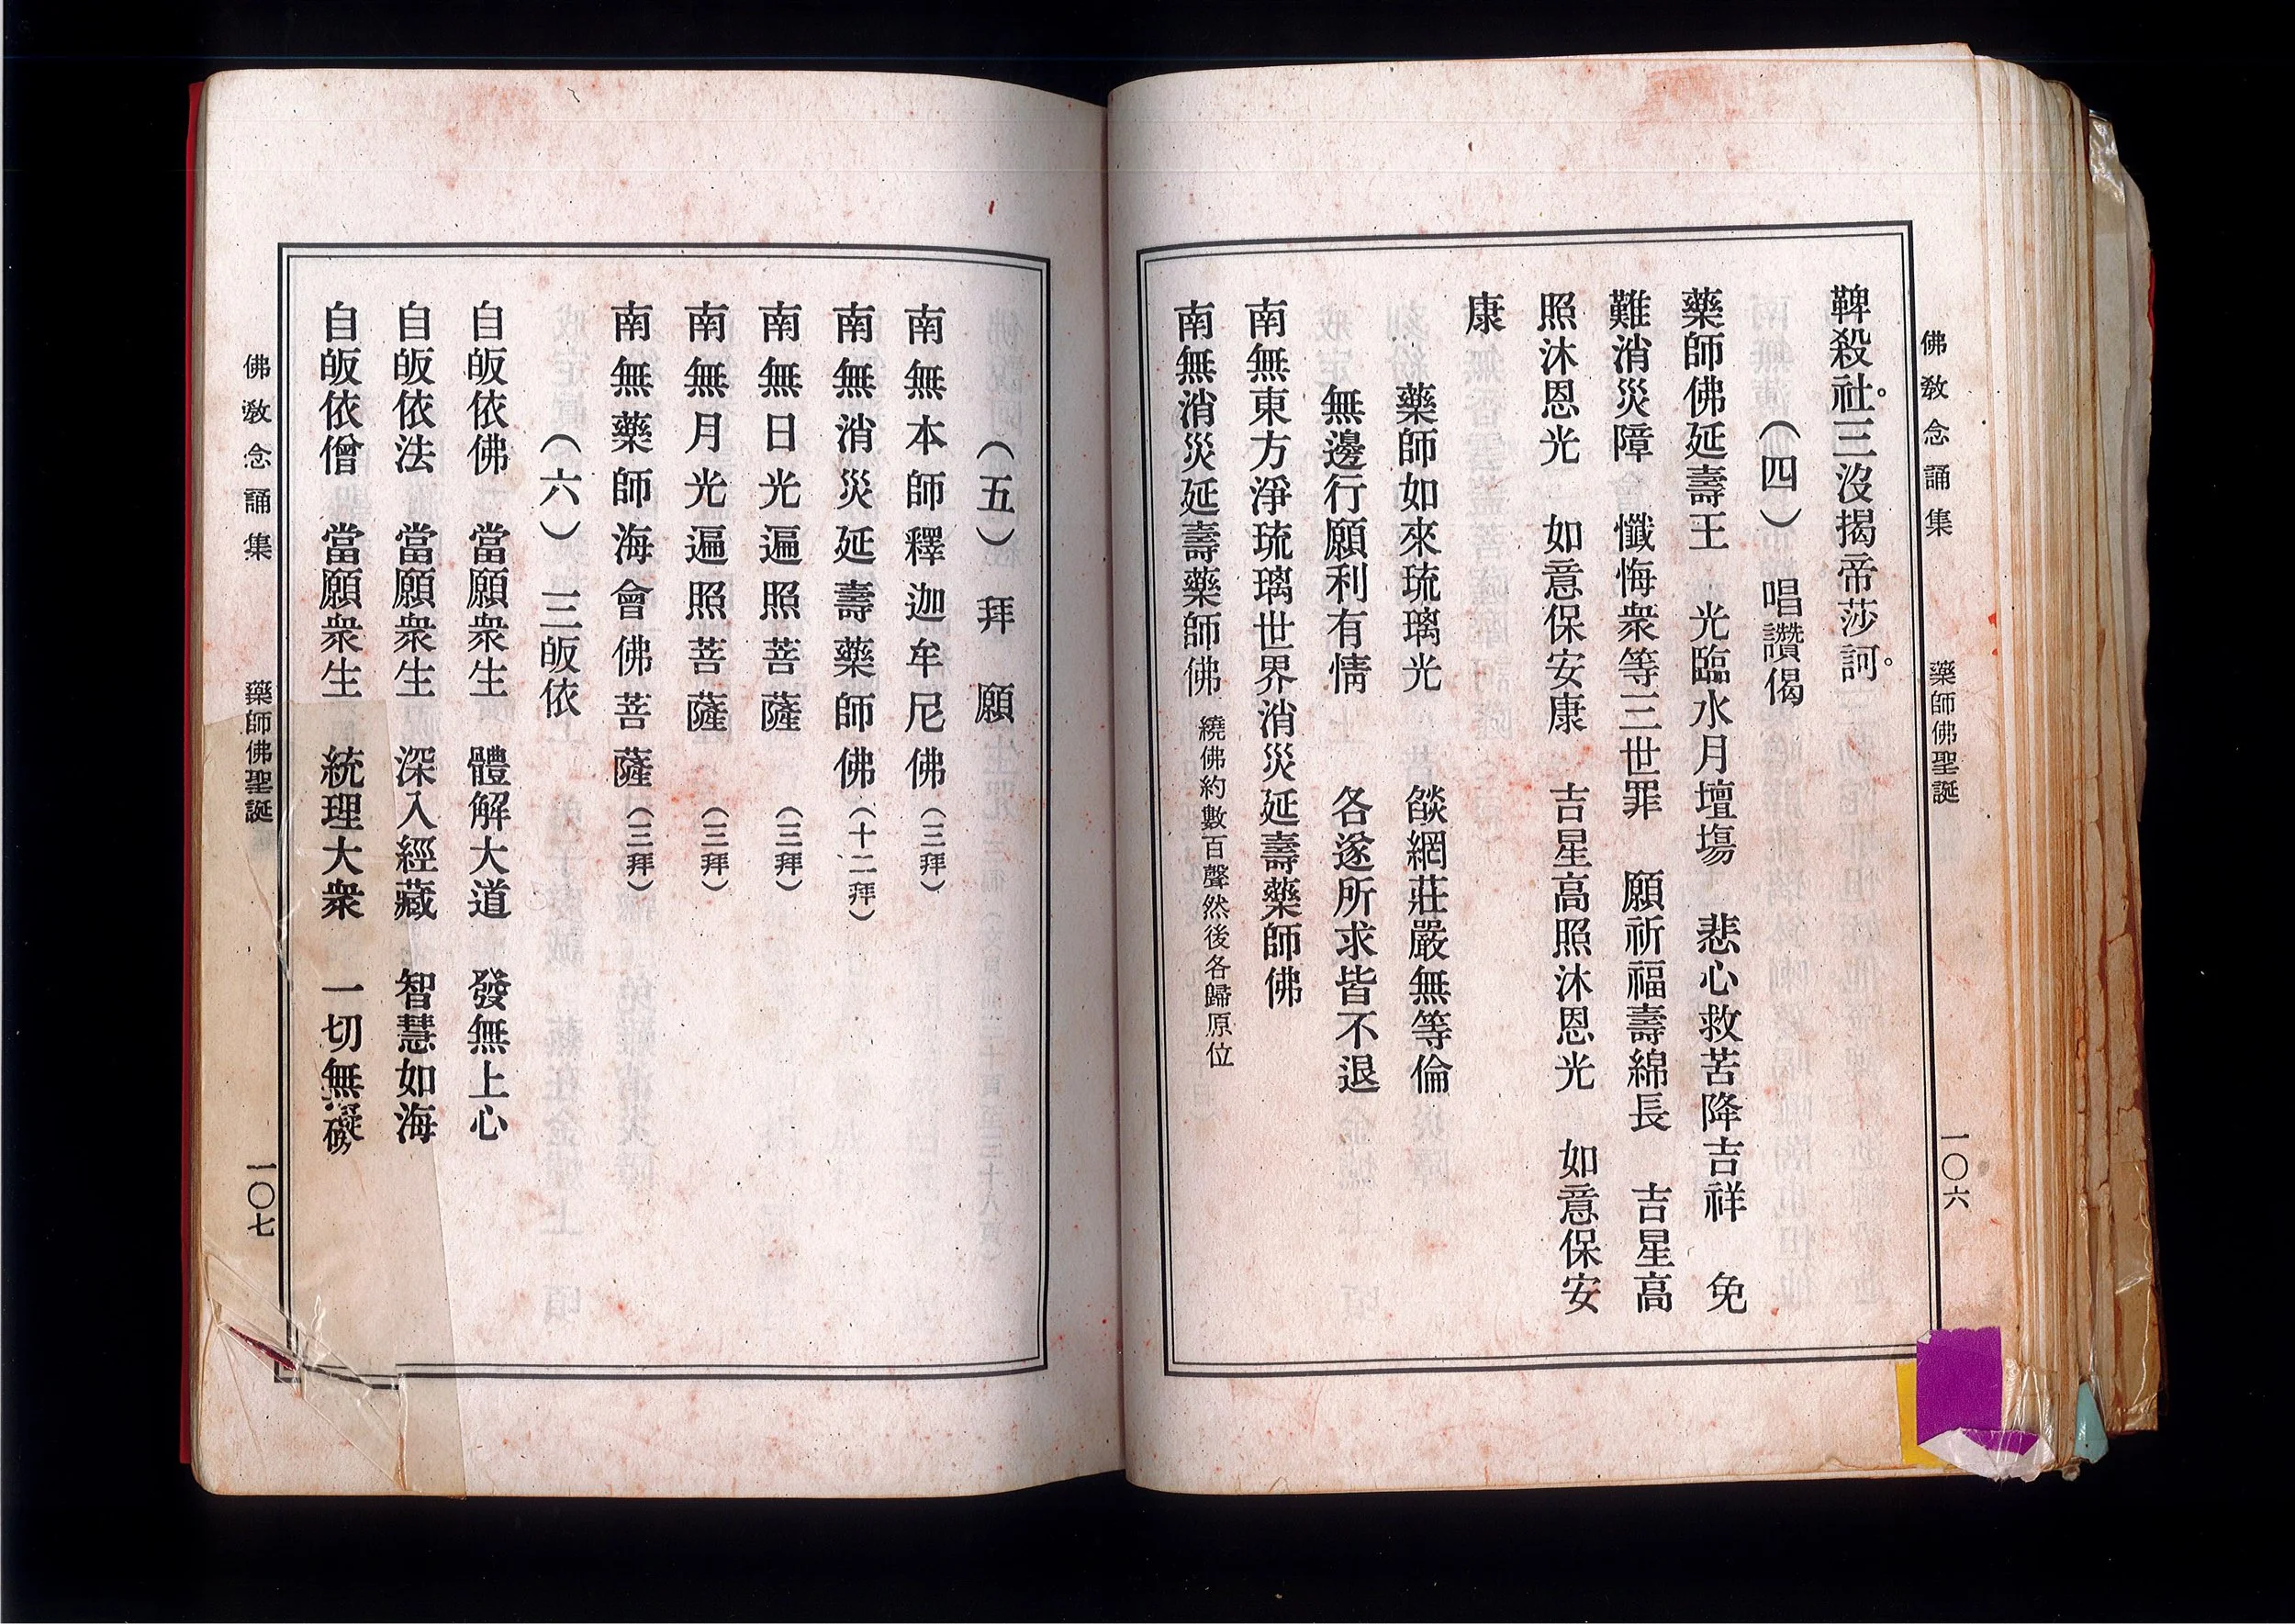 佛教念誦集　藥師佛聖誕　一〇六
鞞殺社。三沒揭帝莎訶。
（四）　唱讚偈
藥師佛延壽王　光臨水月壇場　悲心救苦降吉祥　免
難消災障　懺悔衆等三世罪　願祈福壽綿長　吉星高
照沐恩光　如意保安康　吉星高照沐恩光　如意保安
康
藥師如來琉璃光　燄網莊嚴無等倫
無邊行願利有情　各遂所求皆不退
南無東方淨琉璃世界消災延壽藥師佛
南無消災延壽藥師佛　繞佛約數百聲然後各歸原位
（五）拜願
南無本師釋迦牟尼佛（三拜）
南無消災延壽藥師佛（十二拜）
南無日光遍照菩薩（三拜）
南無月光遍照菩薩（三拜）
南無藥師海會佛菩薩（三拜）
（六）三皈依
自皈依佛　當願衆生　體解大道　發無上心
自皈依法　當願衆生　深入經藏　智慧如海
自皈依僧　當願衆生　統理大衆　一切無礙
佛教念誦集　藥師佛聖誕　一〇七